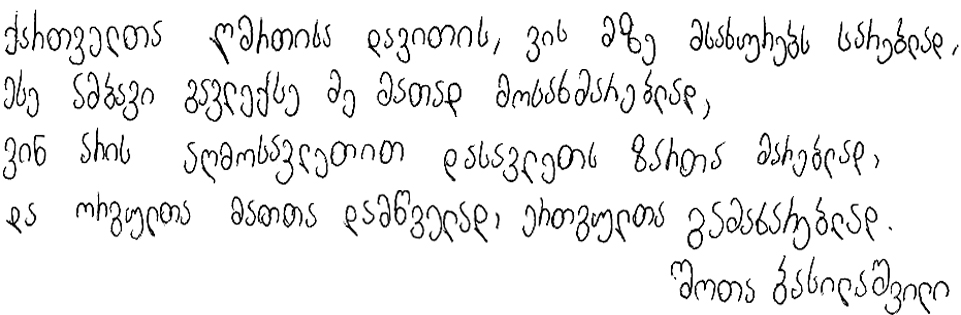 ქართველთა ღმრთისა დავითის, ვის მზე მსახურებს სარებლად,
ესე ამბავი გავლექსე მე მათად მოსახმარებლად,
ვინ არის აღმოსავლეთით დასავლეთს ზართა მარებლად,
და ორგულთა მათთა დამწველად, ერთგულთა გამახარებლად.
შოთა ბასილაშვილი